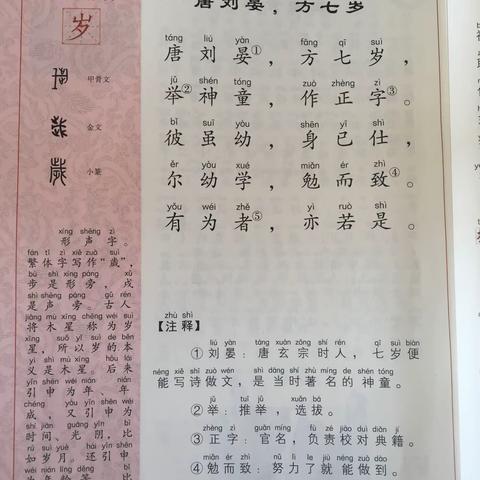 岁
甲骨文
金文
小篆
xíng shēng zì
形声字。
fán tǐ zì xiě zuò suì
繁体字写作“歲”，
bù shì xíng páng xū
步是形旁，戌
shì shēng páng gǔ rén
是声旁。古人
jiāng mù xīng chēng wéi suì
将木星称为岁
xīng suǒ yǐ suì de běn
星，所以岁的本
yì shì mù xīng hòu lái
义是木星。后来
yǐn shēn wéi nián nián
引申为年、年
chéng yòu yǐn shēn wéi
成，又引申为
shí jiān guāng yīn bǐ
时间、光阴，比
rú suì yuè hái yǐn shēn
如岁月。还引申
wéi nián líng děng bǐ
为年龄等，比
唐刘晏，方七岁
táng liú yàn fāng qī suì
唐刘晏①，方七岁，
jǔ shén tóng zuò zhèng zì
举②神童，作正字③。
bǐ suī yòu shēn yǐ shì
彼虽幼，身已仕，
ěr yòu xué miǎn ér zhì
尔幼学，勉而致④。
yǒu wéi zhě yì ruò shì
有为者⑤，亦若是。
zhù shì
【注释】
liú yàn táng xuán zōng shí rén qī suì biàn
①刘晏：唐玄宗时人，七岁便
néng xiě shī zuò wén shì dāng shí zhù míng de shén tóng
能写诗做文，是当时著名的神童。
jǔ tuī jǔ xuǎn bá
②举：推举，选拔。
zhèng zì guān míng fù zé jiào duì diǎn jí
③正字：官名，负责校对典籍。
miǎn ér zhì nǔ lì le jiù néng zuò dào
④勉而致：努力了就能做到。